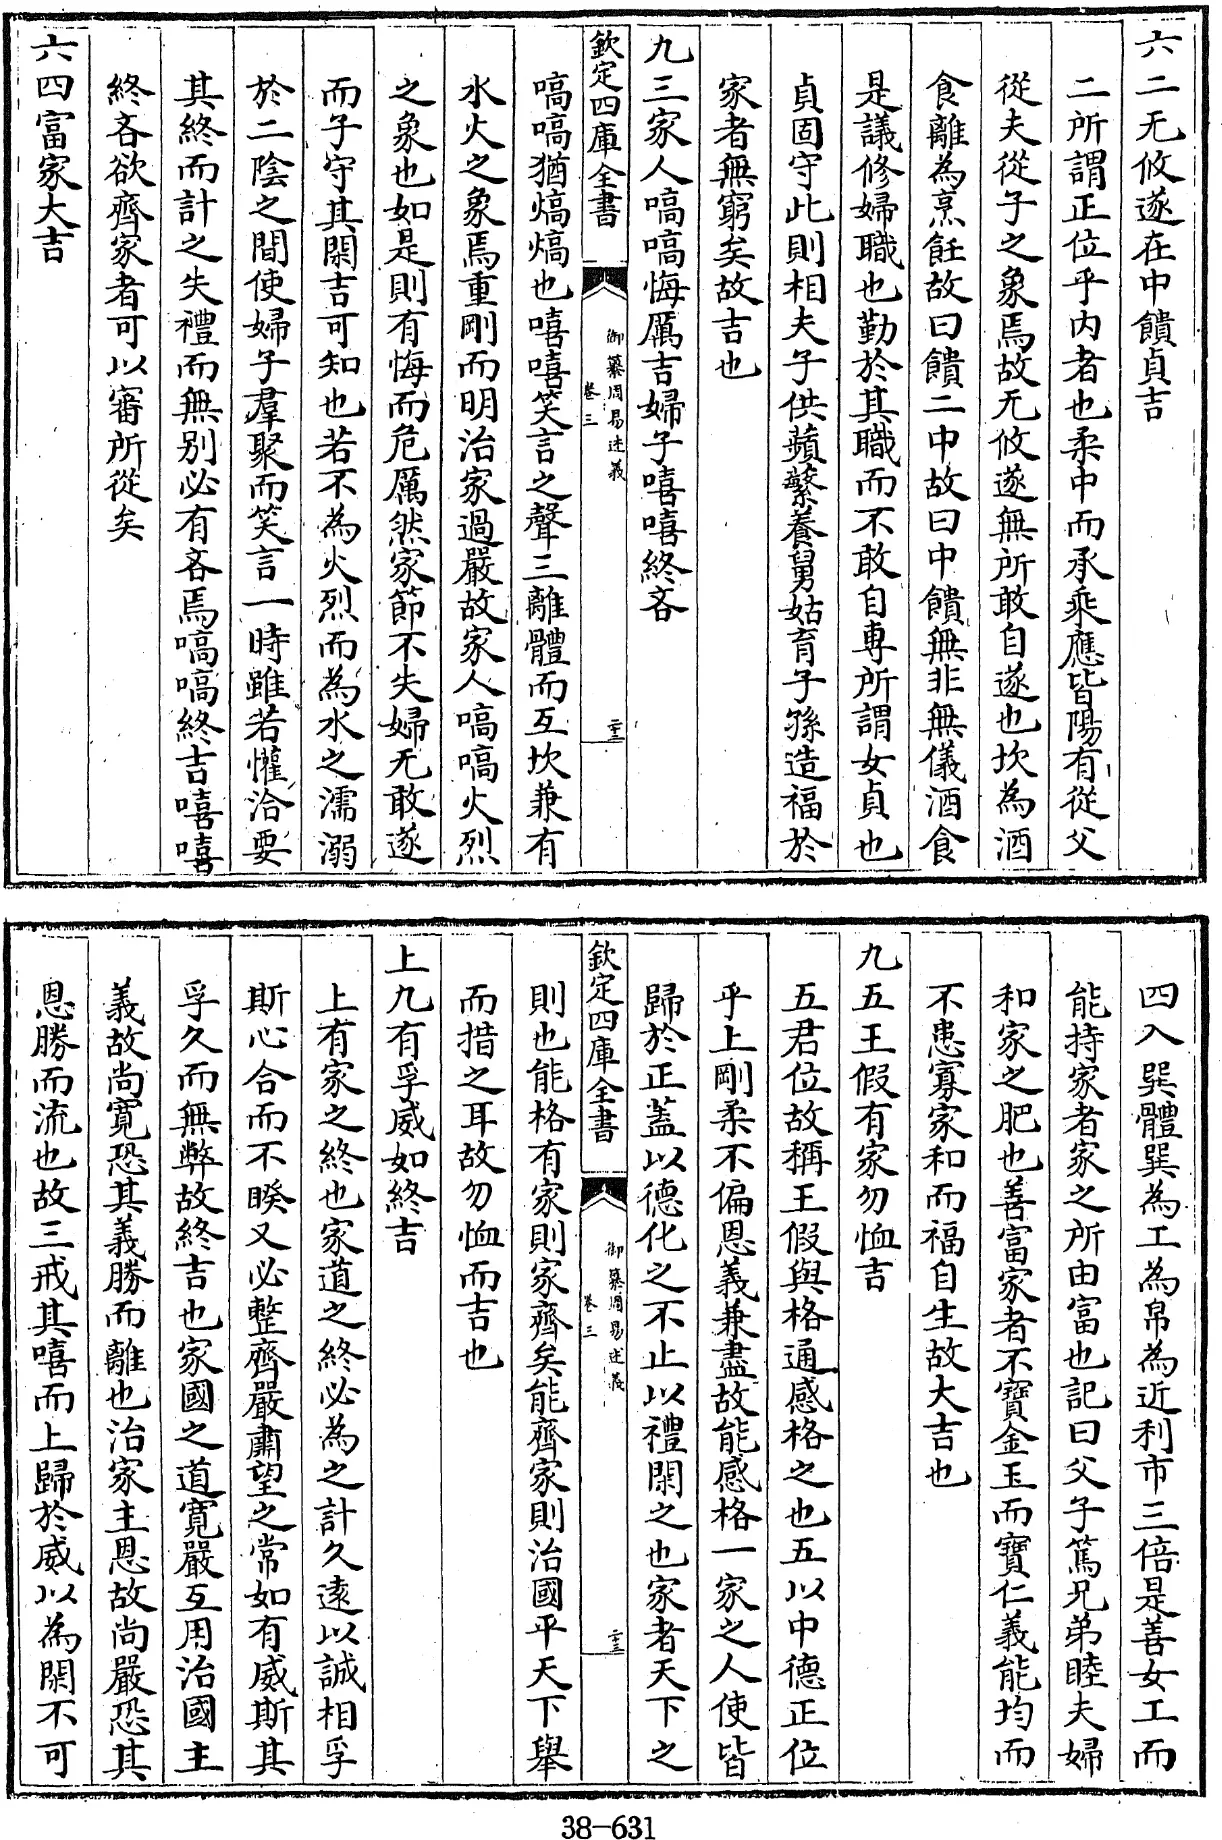 六二无攸遂在中饋貞吉
二所謂正位乎内者也柔中而承乘應皆陽有從父
從夫從子之象焉故无攸遂無所敢自遂也坎為酒
食離為烹飪故曰饋二中故曰中饋無非無儀酒食
是議修婦職也勤於其職而不敢自專所謂女貞也
貞固守此則相夫子供蘋蘩養舅姑育子孫造福於
家者無窮矣故吉也
九三家人嗃嗃悔厲吉婦子嘻嘻終吝
欽定四庫全書
御纂周易述義
卷三
二十三
嗃嗃猶熇熇也嘻嘻笑言之聲三離體而互坎兼有
水火之象焉重剛而明治家過嚴故家人嗃嗃火烈
之象也如是則有悔而危厲然家節不失婦无敢遂
而子守其閑吉可知也若不為火烈而為水之濡溺
於二陰之間使婦子羣聚而笑言一時雖若懽洽要
其終而計之失禮而無别必有吝焉嗃嗃終吉嘻嘻
終吝欲齊家者可以審所從矣
六四富家大吉
四入巽體巽為工為帛為近利市三倍是善女工而
能持家者家之所由富也記曰父子篤兄弟睦夫婦
和家之肥也善富家者不寶金玉而寶仁義能均而
不患寡家和而福自生故大吉也
九五王假有家勿恤吉
五君位故稱王假與格通感格之也五以中德正位
乎上剛柔不偏恩義兼盡故能感格一家之人使皆
歸於正蓋以德化之不止以禮閑之也家者天下之
欽定四庫全書
御纂周易述義
卷三
二十三
則也能格有家則家齊矣能齊家則治國平天下舉
而措之耳故勿恤而吉也
上九有孚威如終吉
上有家之終也家道之終必為之計久遠以誠相孚
斯心合而不睽又必整齊嚴肅望之常如有威斯其
孚久而無弊故終吉也家國之道寛嚴互用治國主
義故尚寛恐其義勝而離也治家主恩故尚嚴恐其
恩勝而流也故三戒其嘻而上歸於威以為閑不可
38-631